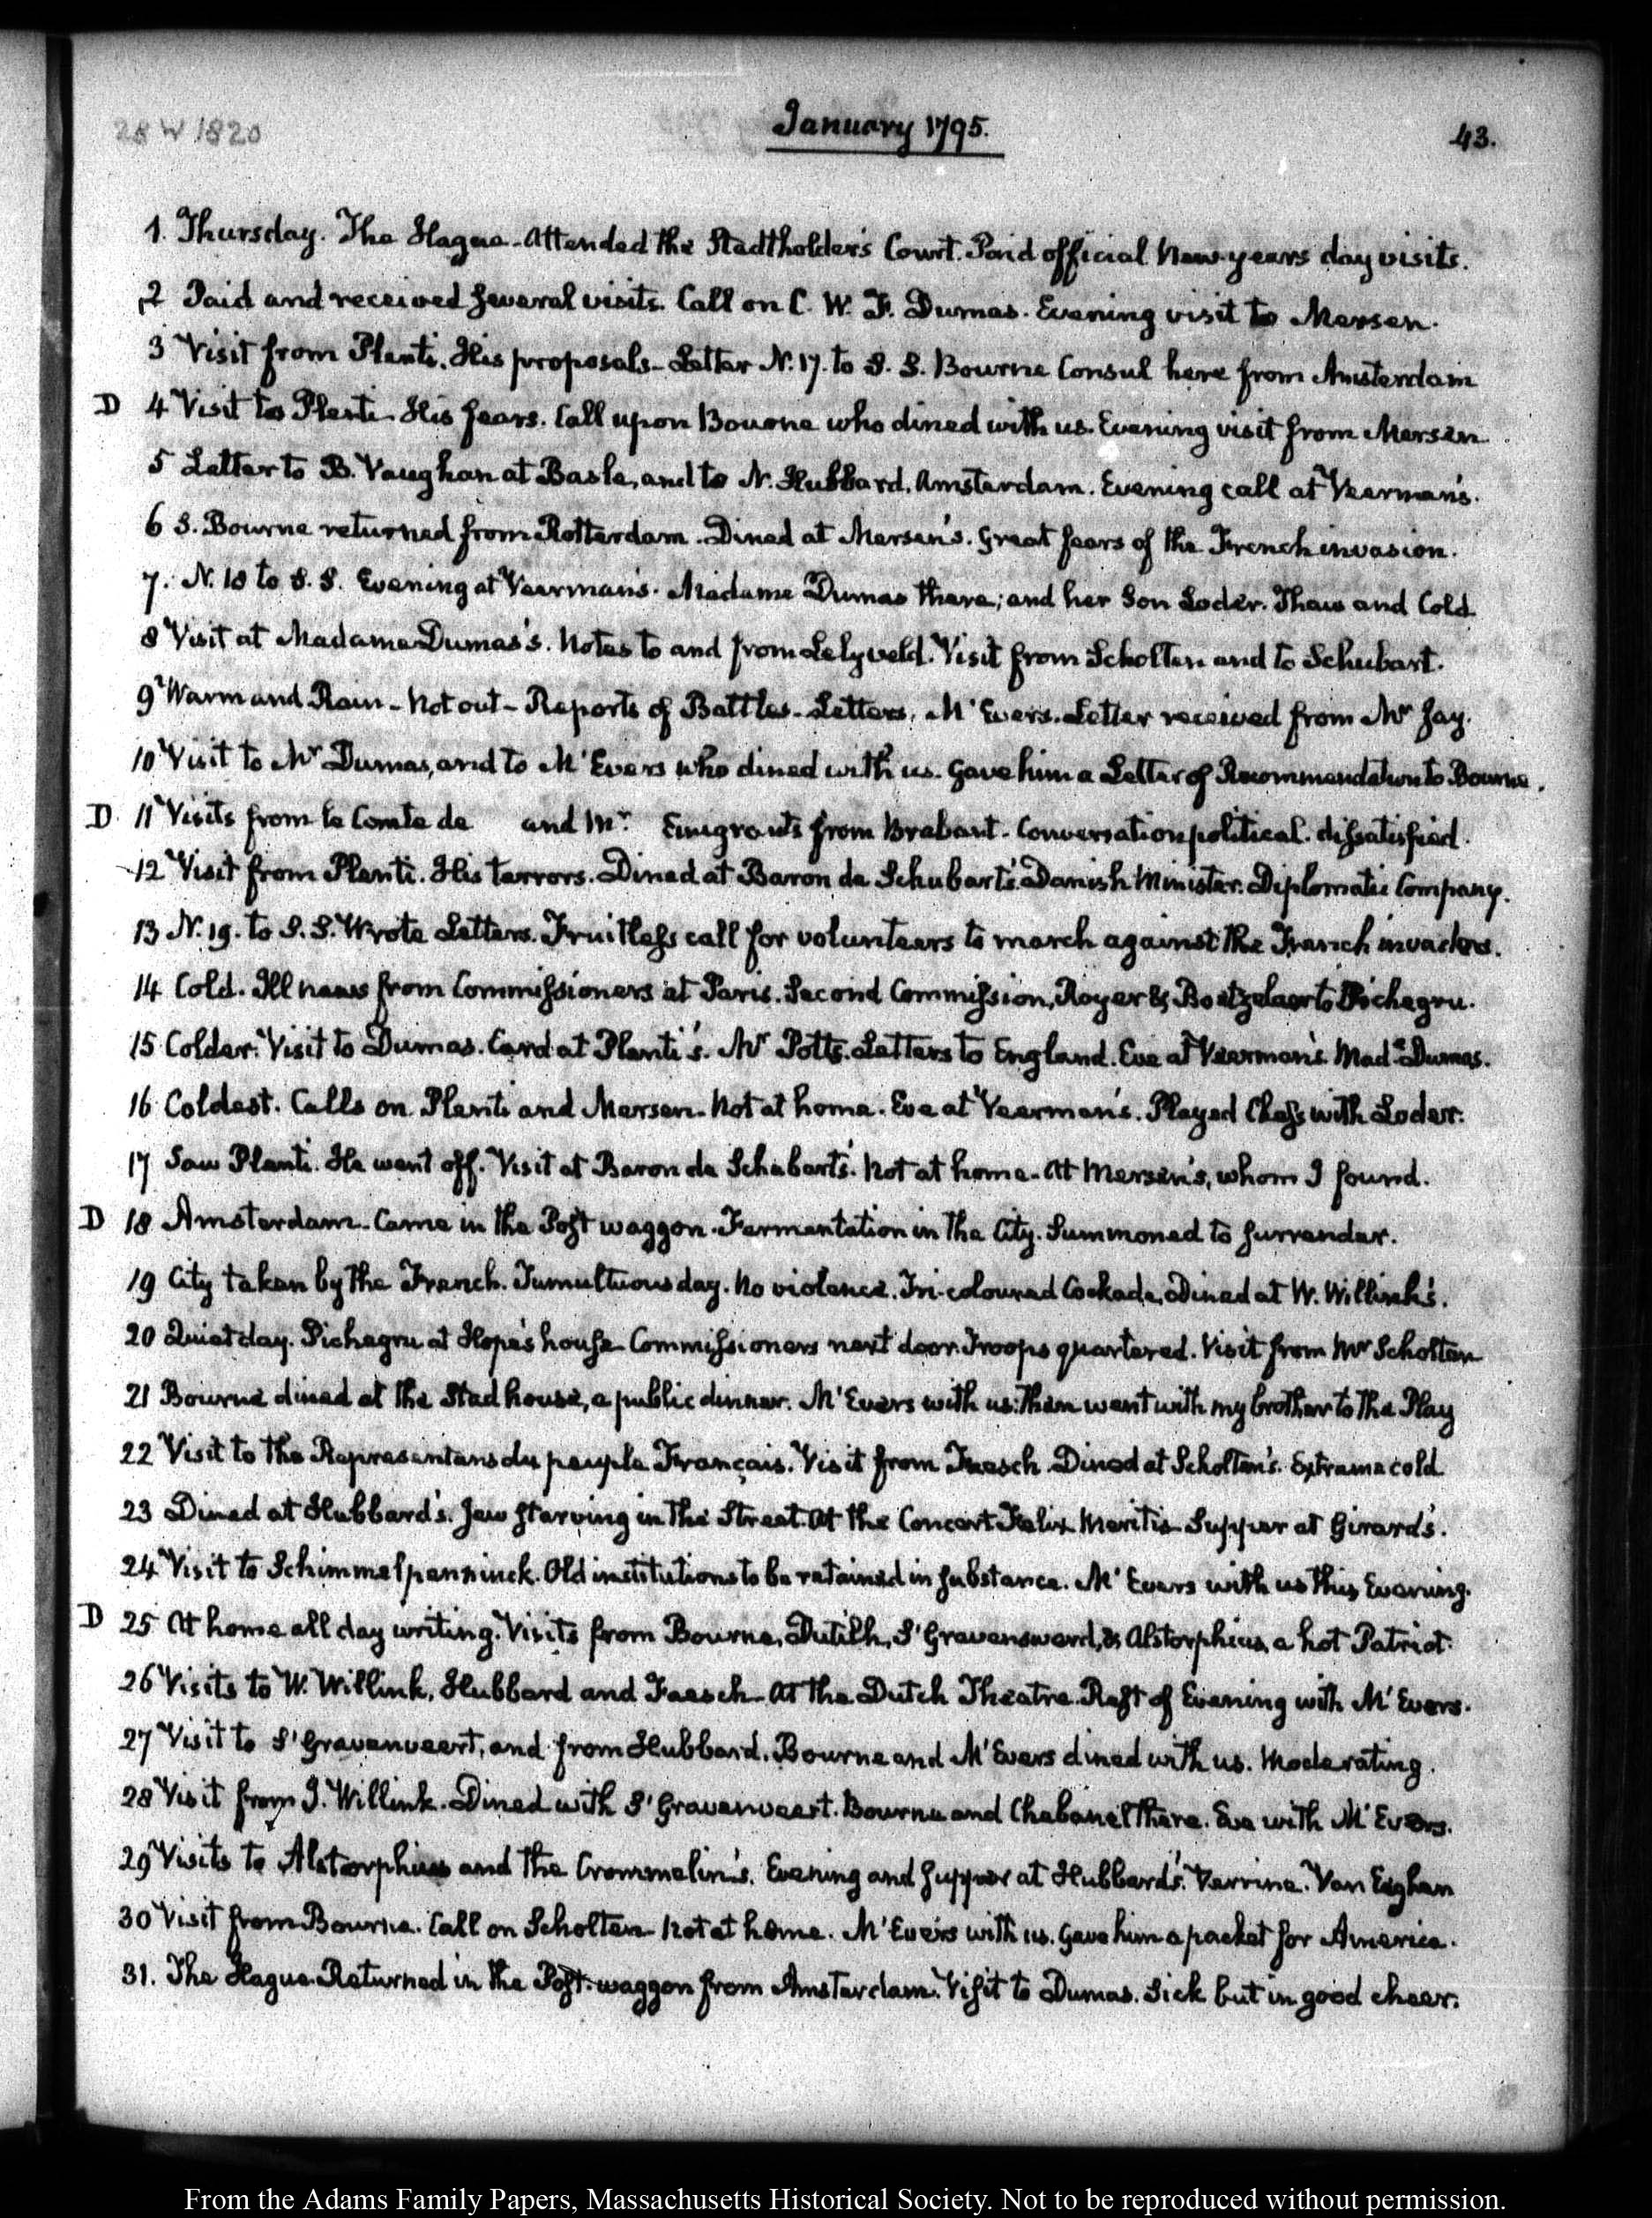 28 W 1820
January 1795.
43.
1. Thursday. The Hague. Attended the Stadtholder's Court. Paid official New-years day visits.
2 Paid and received several visits. Call on C. W. F. Dumas. Evening visit to Mersen.
3 Visit from Planti. His proposals. Letter N. 17. to S. S. Bourne Consul here from Amsterdam
D 4 Visit to Planti. His fears. Call upon Bourne who dined with us. Evening visit from Mersen.
5 Letter to B. Vaughan at Basle, and to N. Hubbard. Amsterdam. Evening call at Veerman's.
6 S. Bourne returned from Rotterdam. Dined at Mersen's. Great fears of the French invasion.
7. N. 18 to S. S. Evening at Veerman's. Madame Dumas there; and her Son Loder. Thaw and Cold
8 Visit at Madame Dumas's. Notes to and from Lelyveld. Visit from Scholten and to Schubart.
9 Warm and Rain - Not out - Reports of Battles - Letters, M'Evers. Letter received from Mr Jay.
10 Visit to Mr Dumas, and to M'Evers who dined with us. Gave him a Letter of Recommendation to Bourne.
D. 11 Visits from le Comte de and Mr. Emigrants from Brabant. Conversation political. dissatisfied.
12 Visit from Planti. His terrors. Dined at Baron de Schubart's. Danish Minister. Diplomatic Company.
13 N. 19. to S. S. Wrote Letters. Fruitless call for volunteers to march against the French invaders.
14 Cold. Ill news from Commissioners at Paris. Second Commission, Royer & Boetzelaer to Pichegru.
15 Colder. Visit to Dumas. Card at Planti's. Mr Potts. Letters to England. Eve at Veerman's. Made Dumas.
16 Coldest. Calls on Planti and Mersen. Not at home. Eve at Veerman's. Played Chess with Loder.
17 Saw Planti. He went off. Visit at Baron de Schubart's. Not at home. At Mersen's, whom I found.
D 18 Amsterdam. Came in the Post waggon. Fermentation in the City. Summoned to surrender.
19 City taken by the French. Tumultuous day. No violence. Tri-coloured Cockade. Dined at W. Willink's.
20 Quiet day. Pichegru at Hope's house. Commissioners next door. Troops quartered. Visit from Mr Scholten
21 Bourne dined at the Stad house, a public dinner. M'Evers with us: then went with my brother to the Play
22 Visit to the Representans du peuple Français. Visit from Faesch. Dined at Scholten's. Extreme cold
23 Dined at Hubbard's. Jew starving in the Street. At the Concert Felix Meritis. Supper at Girard's.
24 Visit to Schimmelpenninck. Old institutions to be retained in substance. M'Evers with us this Evening.
D 25 At home all day writing. Visits from Bourne, Dutilh, S'Gravensweerd, & Alstorphius, a hot Patriot.
26 Visits to W. Willink, Hubbard and Faesch. At the Dutch Theatre. Rest of Evening with M'Evers.
27 Visit to S'Gravenveert, and from Hubbard. Bourne and M'Evers dined with us. Moderating.
28 Visit from J. Willink. Dined with S'Gravenveert. Bourne and Chabanel there. Eve with M'Evers.
29 Visits to Alstorphius and the Crommelin's. Evening and supper at Hubbard's. Verrine. Van Eeghen
30 Visit from Bourne. Call on Scholten. Not at home. M'Evers with us. Gave him a packet for America.
31. The Hague. Returned in the Post-waggon from Amsterdam. Visit to Dumas. Sick but in good cheer.
From the Adams Family Papers, Massachusetts Historical Society. Not to be reproduced without permission.